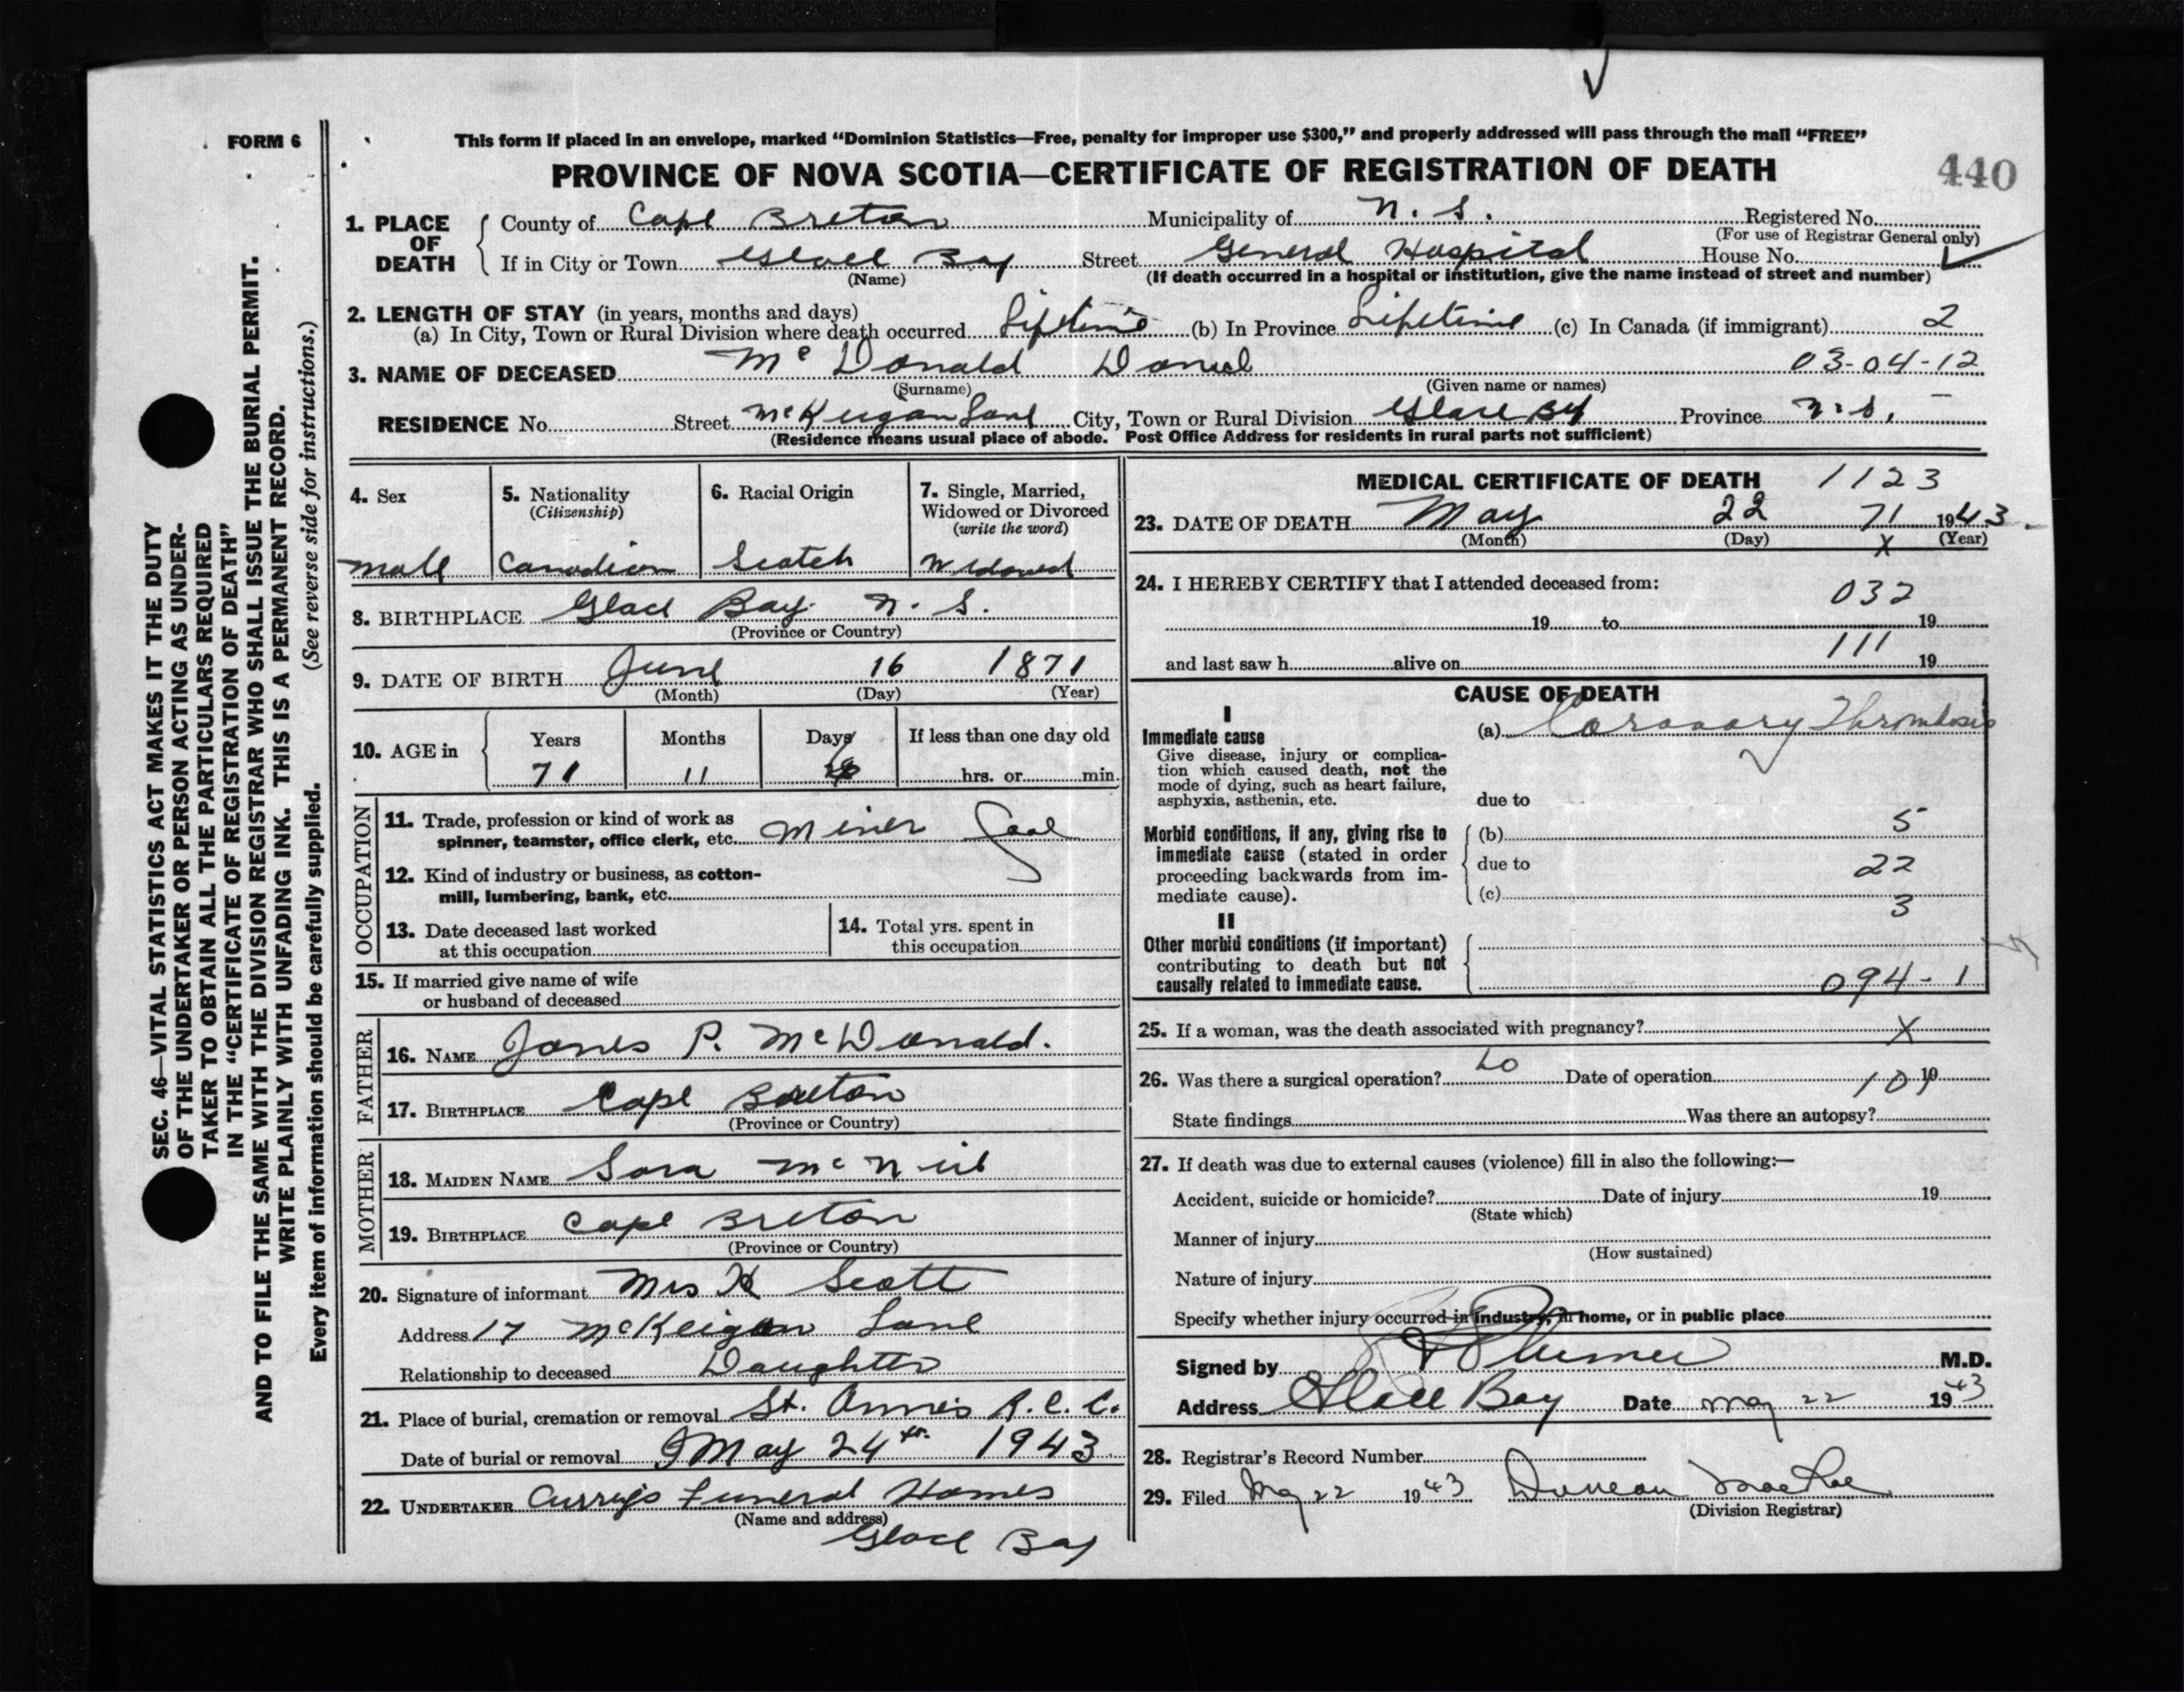 FORM 6
This form if placed in an envelope, marked "Dominion Statistics—Free, penalty for improper use $300," and properly addressed will pass through the mail "FREE"
PROVINCE OF NOVA SCOTIA—CERTIFICATE OF REGISTRATION OF DEATH
440
1. PLACE OF DEATH
County of Cape Breton Municipality of N. S. Registered No.
(For use of Registrar General only)
If in City or Town Glace Bay Street General Hospital House No.
(Name) (If death occurred in a hospital or institution, give the name instead of street and number)
2. LENGTH OF STAY (in years, months and days)
(a) In City, Town or Rural Division where death occurred Lifetime (b) In Province Lifetime (c) In Canada (if immigrant) 2
3. NAME OF DECEASED McDonald Daniel 03-04-12
(Surname) (Given name or names)
RESIDENCE No. Street McKeigan Lane City, Town or Rural Division Glace Bay Province N. S.
(Residence means usual place of abode. Post Office Address for residents in rural parts not sufficient)
4. Sex
male
5. Nationality
(Citizenship)
Canadian
6. Racial Origin
Scotch
7. Single, Married,
Widowed or Divorced
(write the word)
Widowed
8. BIRTHPLACE Glace Bay N. S.
(Province or Country)
9. DATE OF BIRTH June 16 1871
(Month) (Day) (Year)
10. AGE in
Years Months Days If less than one day old
71 11 hrs. or min.
OCCUPATION
11. Trade, profession or kind of work as
spinner, teamster, office clerk, etc. Miner Coal
12. Kind of industry or business, as cotton-
mill, lumbering, bank, etc.
13. Date deceased last worked
at this occupation
14. Total yrs. spent in
this occupation
15. If married give name of wife
or husband of deceased
FATHER
16. NAME James P. McDonald.
17. BIRTHPLACE Cape Breton
(Province or Country)
MOTHER
18. MAIDEN NAME Sara McNeil
19. BIRTHPLACE Cape Breton
(Province or Country)
20. Signature of informant Mrs H Scott
Address 17 McKeigan Lane
Relationship to deceased Daughter
21. Place of burial, cremation or removal St. Anne's R. C. C.
Date of burial or removal May 24th 1943
22. UNDERTAKER Curry's Funeral Homes
(Name and address)
Glace Bay
MEDICAL CERTIFICATE OF DEATH 1123
23. DATE OF DEATH May 22 71 1943
(Month) (Day) X (Year)
24. I HEREBY CERTIFY that I attended deceased from:
032
19 to 19
111
and last saw h alive on 19
CAUSE OF DEATH
I
Immediate cause
Give disease, injury or complica-
tion which caused death, not the
mode of dying, such as heart failure,
asphyxia, asthenia, etc.
(a) Coronary Thrombosis
due to
Morbid conditions, if any, giving rise to
immediate cause (stated in order
proceeding backwards from im-
mediate cause).
(b) 5
due to 22
(c) 3
II
Other morbid conditions (if important)
contributing to death but not
causally related to immediate cause.
094-1
25. If a woman, was the death associated with pregnancy? X
26. Was there a surgical operation? Date of operation 19
State findings Was there an autopsy?
27. If death was due to external causes (violence) fill in also the following:—
Accident, suicide or homicide? Date of injury 19
(State which)
Manner of injury
(How sustained)
Nature of injury
Specify whether injury occurred in industry, in home, or in public place
Signed by M.D.
Address Glace Bay Date May 22 1943
28. Registrar's Record Number
29. Filed May 22 1943 Duncan MacRae
(Division Registrar)
SEC. 46—VITAL STATISTICS ACT MAKES IT THE DUTY
OF THE UNDERTAKER OR PERSON ACTING AS UNDER-
TAKER TO OBTAIN ALL THE PARTICULARS REQUIRED
IN THE "CERTIFICATE OF REGISTRATION OF DEATH"
AND TO FILE THE SAME WITH THE DIVISION REGISTRAR WHO SHALL ISSUE THE BURIAL PERMIT.
WRITE PLAINLY WITH UNFADING INK. THIS IS A PERMANENT RECORD.
Every item of information should be carefully supplied. (See reverse side for instructions.)